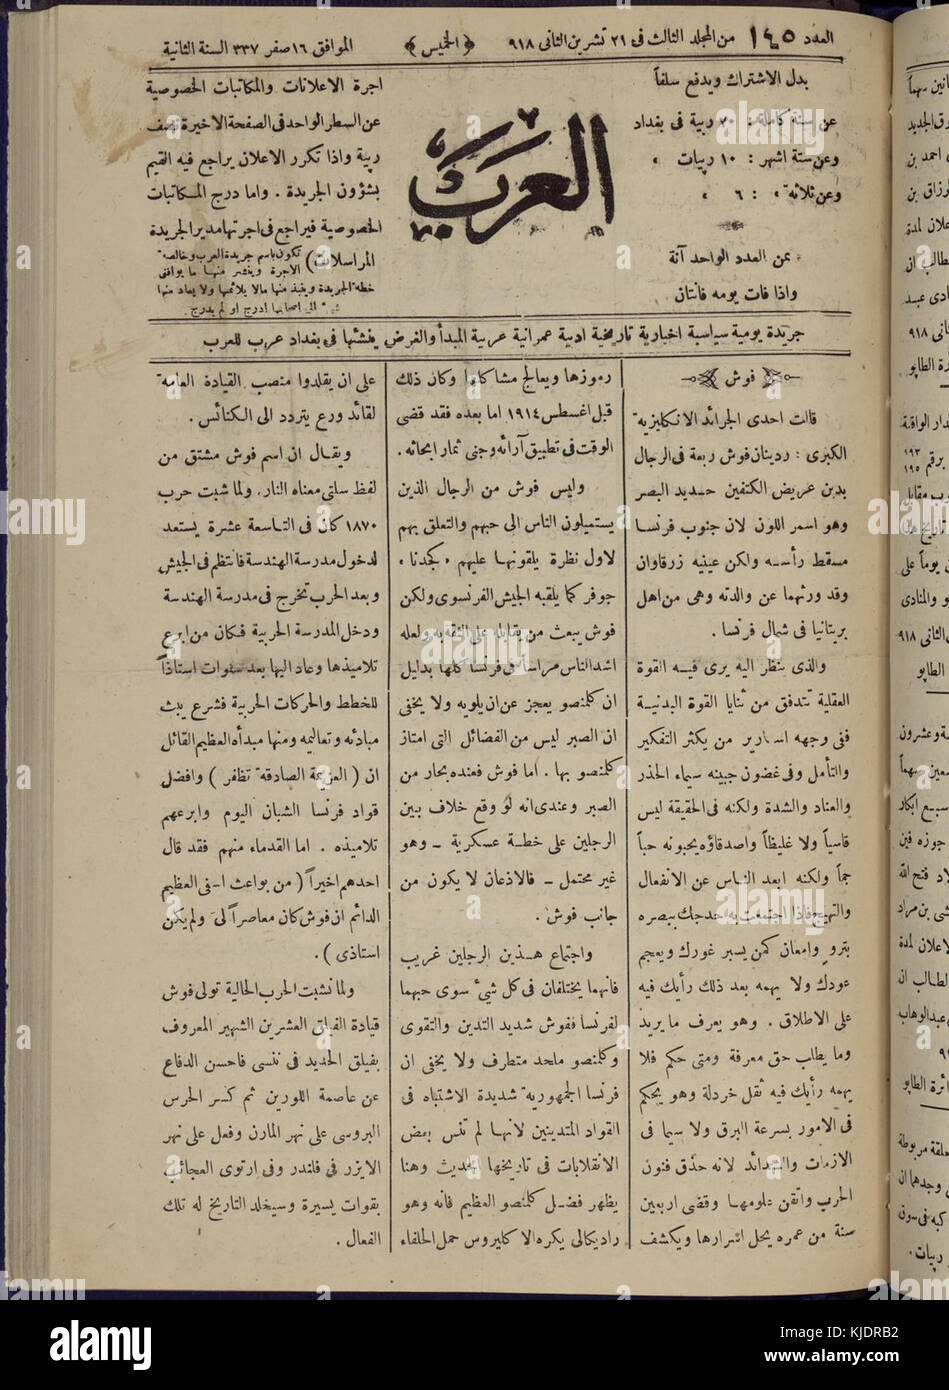 العدد ١٤٥ من المجلد الثالث فى ٢١ تشرين الثانى ٩١٨ ﴿ الخميس ﴾ الموافق ١٦ صفر ٣٣٧ السنة الثانية
بدل الاشتراك ويدفع سلفاً
عن سنة كاملة : ٢٠ ربية فى بغداد
وعن ستة اشهر : ١٠ ربيات »
وعن ثلاثة » : ٦ »
ثمن العدد الواحد آنة
واذا فات يومه فانتان
العرب
اجرة الاعلانات والمكاتبات الخصوصية
عن السطر الواحد فى الصفحة الاخيرة نصف
ربية واذا تكرر الاعلان يراجع فيه القيم
بشؤون الجريدة . واما درج المكاتبات
الخصوصية فيراجع فى اجرتها مدير الجريدة
المراسلات ) تكون باسم جريدة العرب وخالصة
الاجرة وينشر منها ما يوافق
خطة الجريدة وينبذ منها مالا يلائمها ولا يعاد منها
شئ الى اصحابها ادرج او لم يدرج
جريدة يومية سياسية اخبارية تاريخية ادبية عمرانية عربية المبدأ والغرض ينشئها فى بغداد عرب للعرب
فوش
قالت احدى الجرائد الانكليزية
الكبرى : ردينان فوش ربعة فى الرجال
بدين عريض الكتفين حديد البصر
وهو اسمر اللون لان جنوب فرنسا
مسقط رأسه ولكن عينيه زرقاوان
وقد ورثهما عن والدته وهى من اهل
بريتانيا فى شمال فرنسا .
والذى ينظر اليه يرى فيه القوة
العقلية تتدفق من ثنايا القوة البدنية
ففى وجهه اسارير من يكثر التفكير
والتأمل وفى غضون جبينه سيماء الحذر
والعناد والشدة ولكنه فى الحقيقة ليس
قاسياً ولا غليظاً واصدقاؤه يحبونه حباً
جماً ولكنه ابعد الناس عن الانفعال
والتهيج فاذا اجتمعت به حدجك ببصره
بتروٍ وامعان كمن يسبر غورك ويعجم
عودك ولا يهمه بعد ذلك رأيك فيه
على الاطلاق . وهو يعرف ما يريد
وما يطلب حق معرفة ومتى حكم فلا
يهمه رأيك فيه ثقل خردلة وهو يحكم
فى الامور بسرعة البرق ولا سيما فى
الازمات والشدائد لانه حذق فنون
الحرب واتقن علومها وقضى اربعين
سنة من عمره يحل اسرارها ويكشف
رموزها ويعالج مشاكلها وكان ذلك
قبل اغسطس ١٩١٤ اما بعده فقد قضى
الوقت فى تطبيق آرائه وجنى ثمار ابحاثه .
وليس فوش من الرجال الذين
يستميلون الناس الى حبهم والتعلق بهم
لاول نظرة يلقونها عليهم « كجدنا »
جوفر كما يلقبه الجيش الفرنسوى ولكن
فوش يبعث من يقابله على الثقة به ولعله
اشد الناس مراساً فى فرنسا كلها بدليل
ان كلمنصو يعجز عن ان يلويه ولا يخفى
ان الصبر ليس من الفضائل التى امتاز
كلمنصو بها . اما فوش فعنده بحار من
الصبر وعندى انه لو وقع خلاف بين
الرجلين على خطة عسكرية – وهو
غير محتمل – فالاذعان لا يكون من
جانب فوش .
واجتماع هذين الرجلين غريب
فانهما يختلفان فى كل شئ سوى حبهما
لفرنسا ففوش شديد التدين والتقوى
وكلمنصو ملحد متطرف ولا يخفى ان
فرنسا الجمهورية شديدة الاشتباه فى
القواد المتدينين لانها لم تنس بعض
الانقلابات فى تاريخها الحديث وهنا
يظهر فضل كلمنصو العظيم فانه وهو
راديكالى يكره الاكليروس حمل الحلفاء
على ان يقلدوا منصب القيادة العامة
لقائد ورع يتردد الى الكنائس .
ويقال ان اسم فوش مشتق من
لفظ سلتى معناه النار . ولما شبت حرب
١٨٧٠ كان فى التاسعة عشرة يستعد
لدخول مدرسة الهندسة فانتظم فى الجيش
وبعد الحرب تخرج فى مدرسة الهندسة
ودخل المدرسة الحربية فكان من ابرع
تلاميذها وعاد اليها بعد سنوات استاذاً
للخطط والحركات الحربية فشرع يبث
مبادئه وتعاليمه ومنها مبدأه العظيم القائل
ان ( العزيمة الصادقة تظفر ) وافضل
قواد فرنسا الشبان اليوم وابرعهم
تلاميذه . اما القدماء منهم فقد قال
احدهم اخيراً ( من بواعث اسفى العظيم
الدائم ان فوش كان معاصراً لى ولم يكن
استاذى ) .
ولما نشبت الحرب الحالية تولى فوش
قيادة الفيلق العشرين الشهير المعروف
بفيلق الحديد فى ننسى فاحسن الدفاع
عن عاصمة اللورين ثم كسر الحرس
البروسى على نهر المارن وفعل على نهر
الايزر فى فلندر وفى ارتوى العجائب
بقوات يسيرة وسيخلد التاريخ له تلك
الفعال .
alamy
Image ID: KJDRB2
www.alamy.com